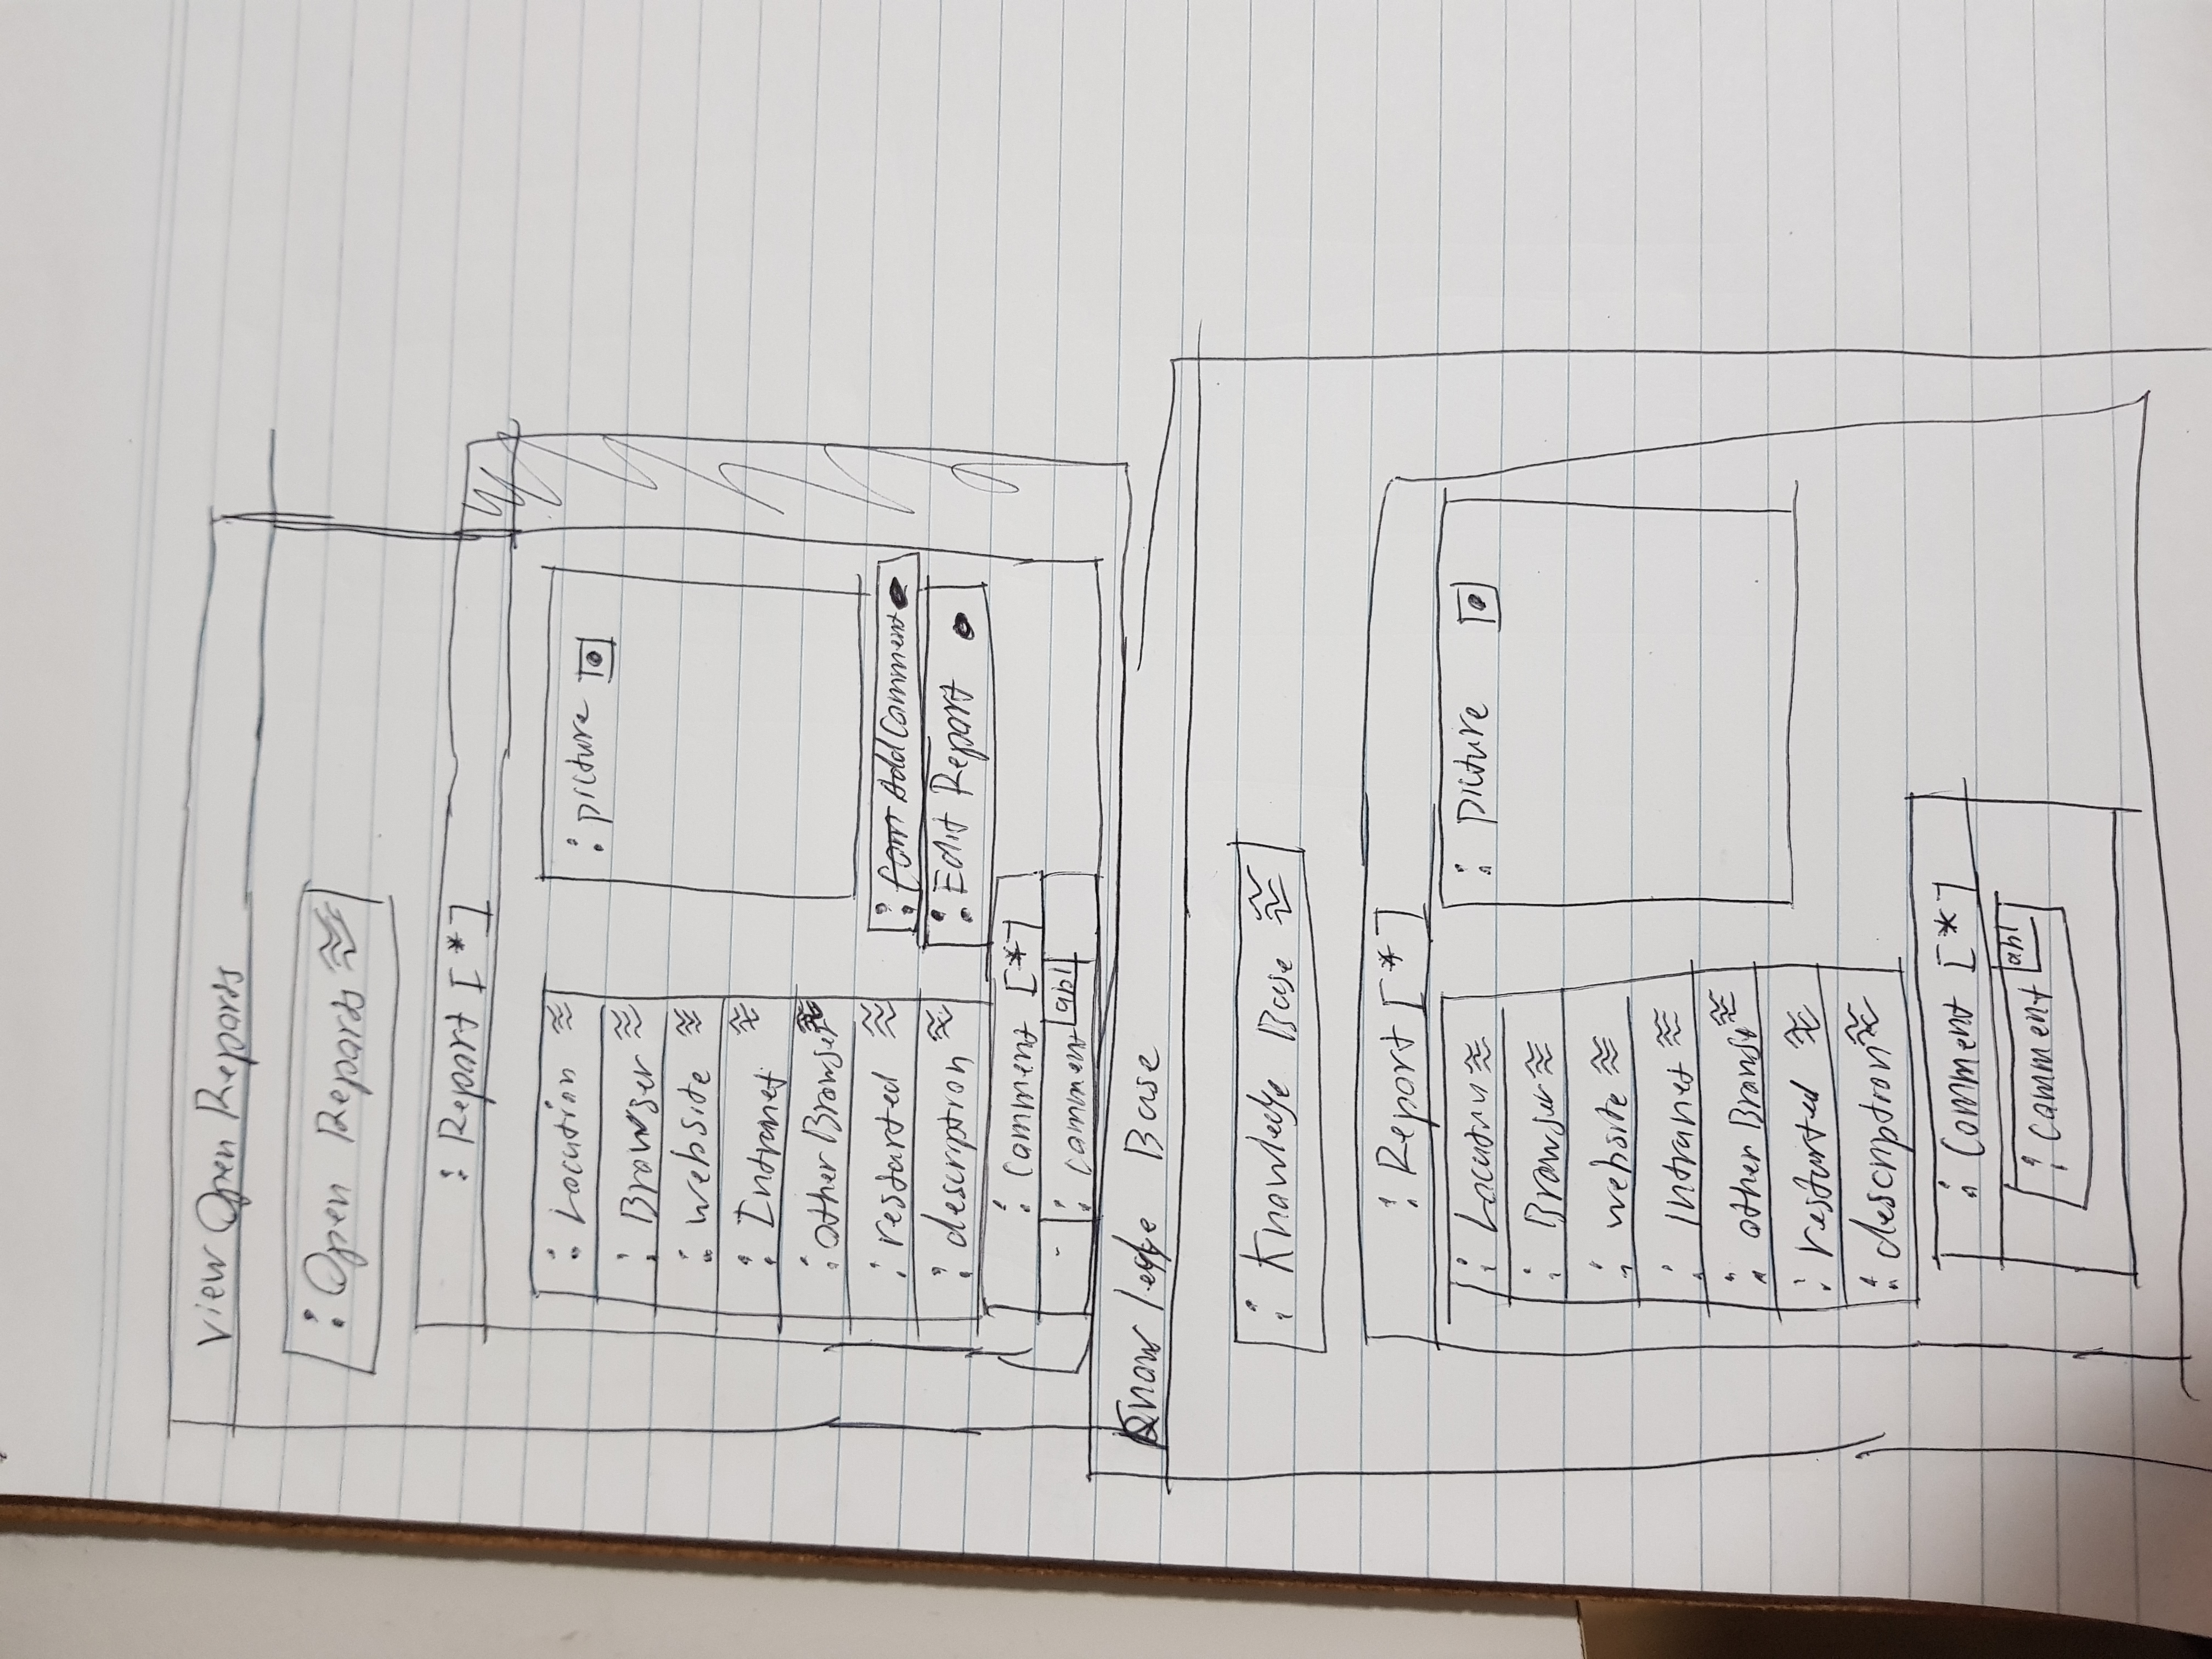 View Open Reports
: Open Reports
: Report [*]
: Location
: picture
: Browser
: website
: Intranet
: other Browser
: restarted
: Add Comment
: description
: Edit Report
: Comment [*]
: comment abl
Knowledge Base
: Knowledge Base
: Report [*]
: Location
: picture
: Browser
: website
: Intranet
: other Browse
: restarted
: description
: Comment [*]
: comment abl